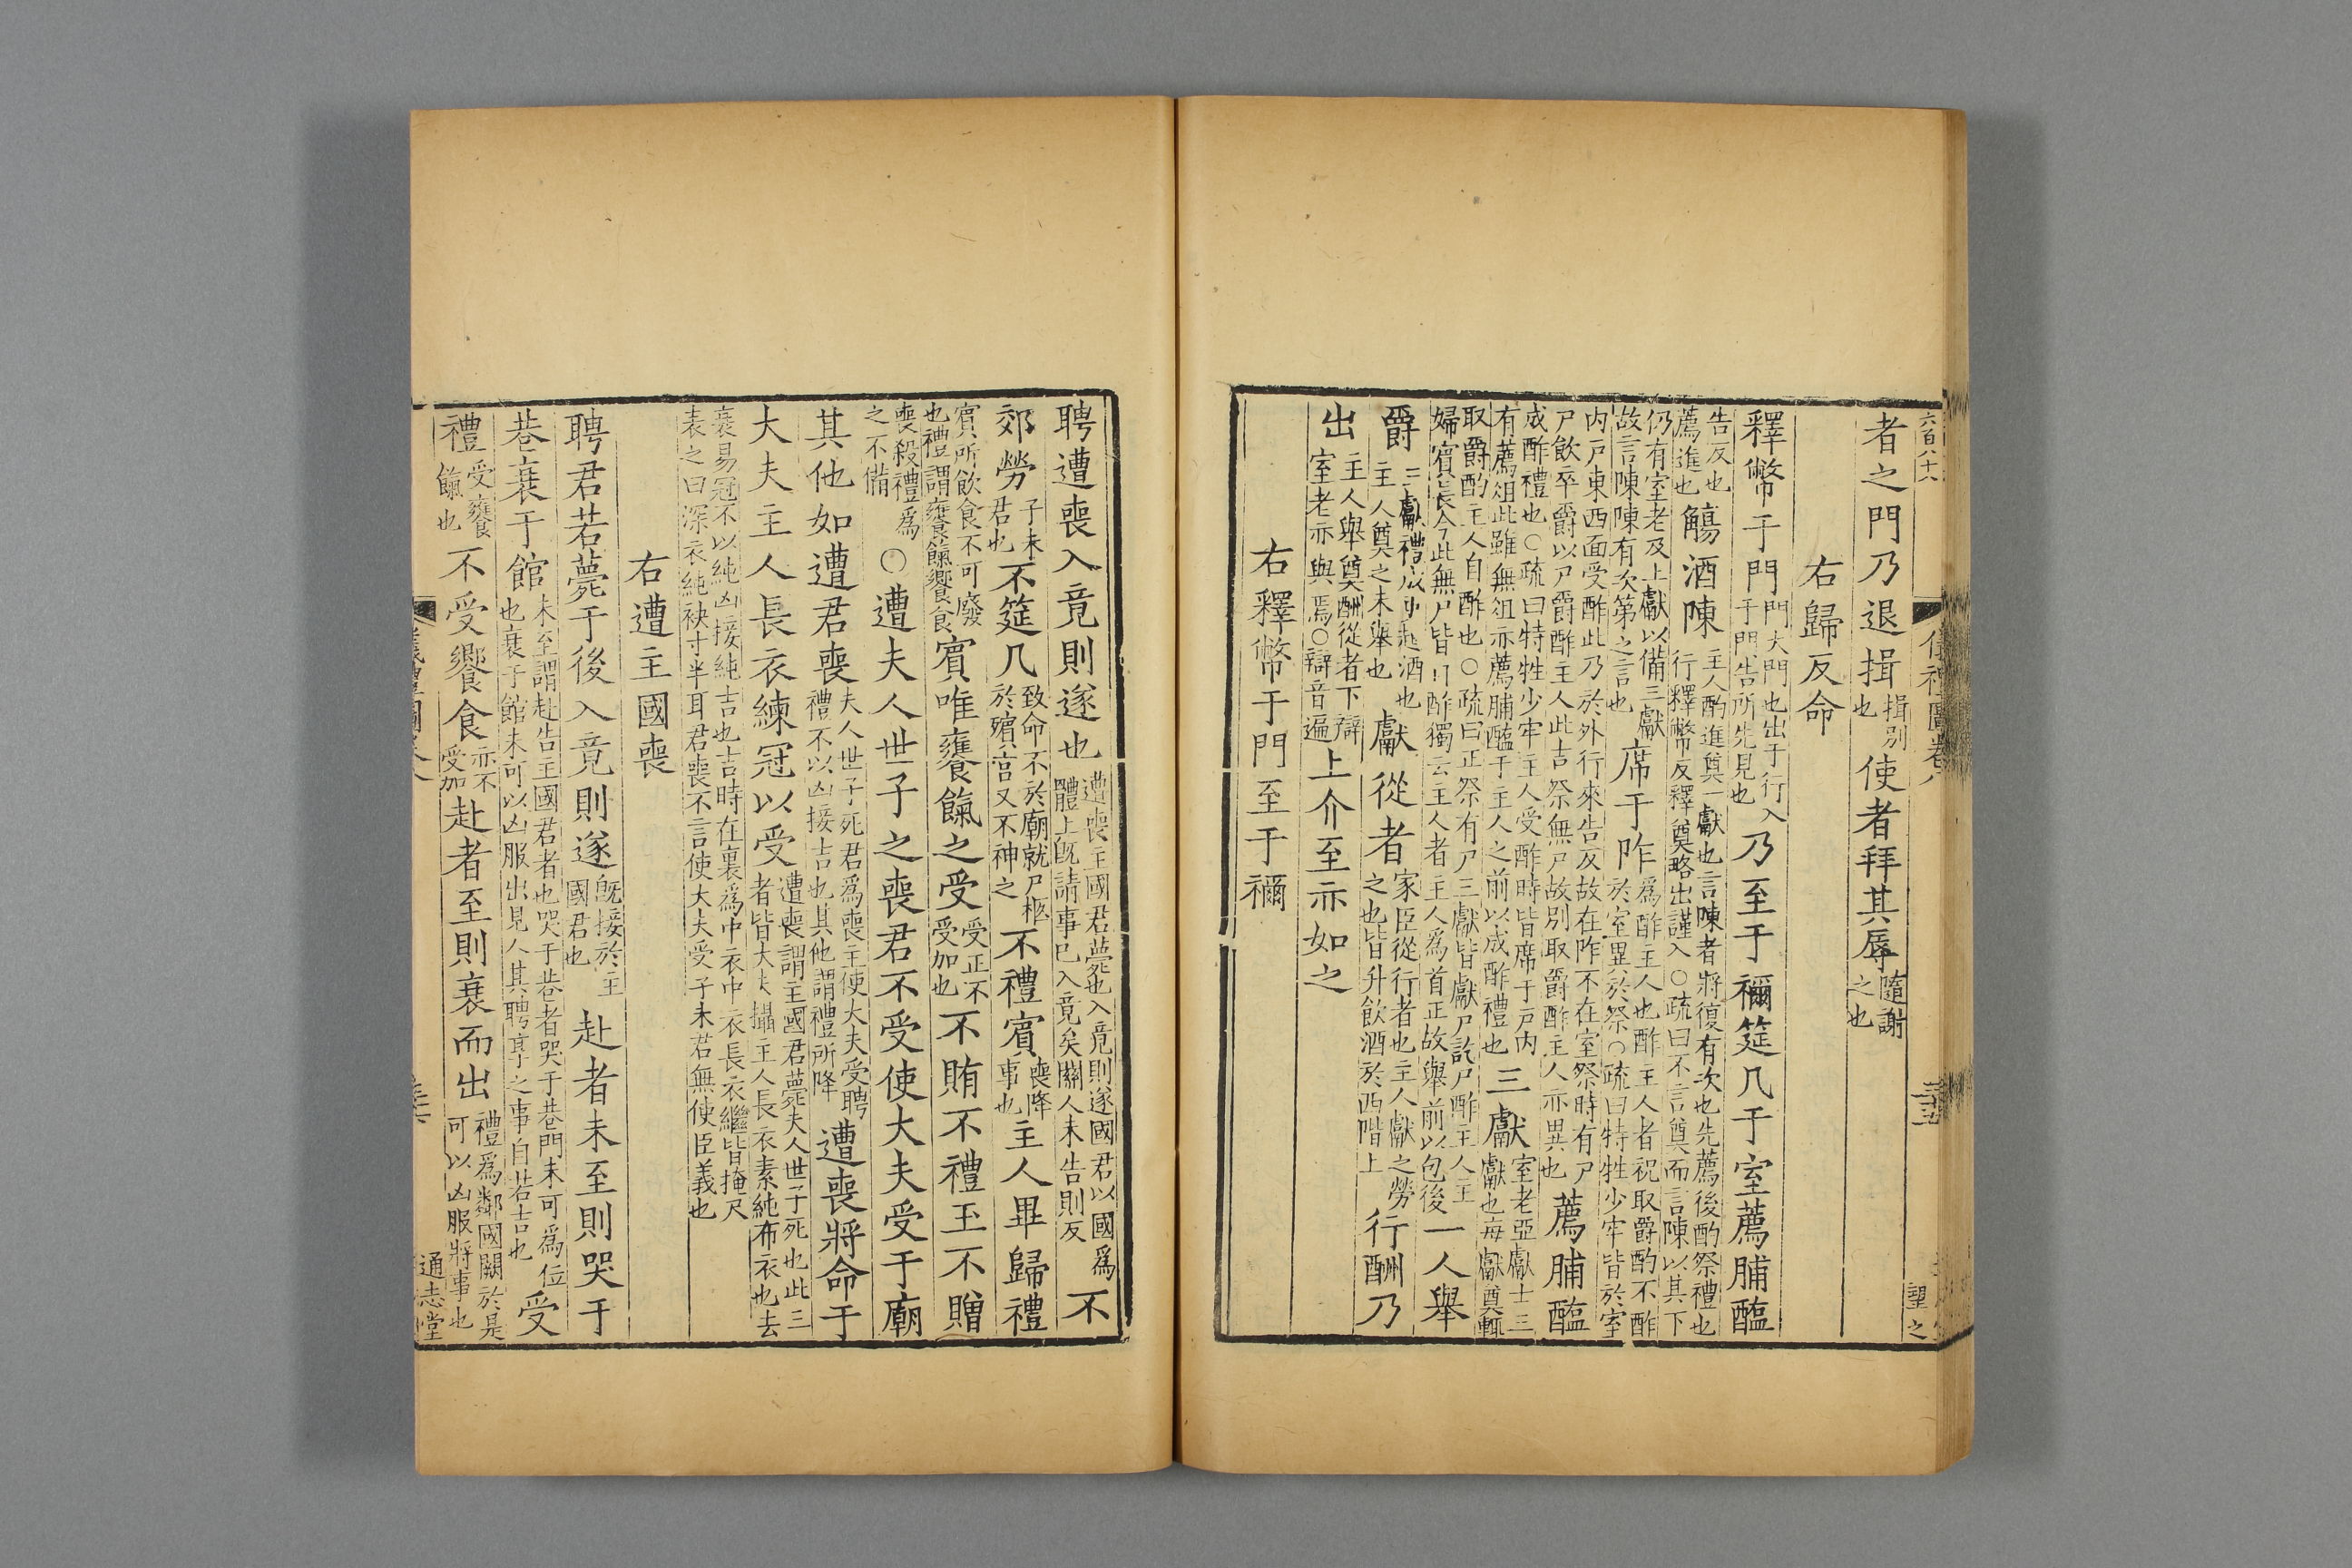 六百八十八
儀禮圖卷八
三十五
望之
者之門乃退揖揖別也使者拜其辱隨謝之也
右歸反命
釋幣于門門大門也出于行入于門告所先見也乃至于禰筵几于室薦脯醢
告反也薦進也觴酒陳主人酌進奠一獻也言陳者將復有次也先薦後酌祭禮也行釋幣反釋奠略出謹入○疏曰不言奠而言陳以其下
仍有室老及上獻以備三獻故言陳陳有次第之言也席于阼為酢主人也酢主人者祝取爵酌不酢於室異於祭○疏曰特牲少牢皆於室
内戶東西面受酢此乃於外行來告反故在阼不在室祭時有尸尸飲卒爵以尸爵酢主人此吉祭無尸故別取爵酢主人亦異也薦脯醢
成酢禮也○疏曰特牲少牢主人受酢時皆席于戶内有薦俎此雖無俎亦薦脯醢于主人之前以成酢禮也三獻室老亞獻士三獻也每獻奠輒
取爵酌主人自酢也○疏曰正祭有尸三獻皆獻尸訖尸酢主人主婦賓長今此無尸皆自酢獨云主人者主人為首正故舉前以包後一人舉
爵三獻禮成更起酒也主人奠之未舉也獻從者家臣從行者也主人獻之勞之也皆升飲酒於西階上行酬乃
出主人舉奠酬從者下辯室老亦與焉○辯音遍上介至亦如之
右釋幣于門至于禰
聘遭喪入竟則遂也遭喪主國君薨也入竟則遂國君以國為體上既請事已入竟矣關人未告則反不
郊勞子未君也不筵几致命不於廟就尸柩於殯宮又不神之不禮賓喪降事也主人畢歸禮
賓所飲食不可廢也禮謂饔餼饗食賓唯饔餼之受受正不受加也不賄不禮玉不贈
喪殺禮為之不備○遭夫人世子之喪君不受使大夫受于廟
其他如遭君喪夫人世子死君為喪主使大夫受聘禮不以凶接吉也其他謂禮所降遭喪將命于
大夫主人長衣練冠以受遭喪謂主國君薨夫人世子死也此三者皆大夫攝主人長衣素純布衣也去
衰易冠不以純凶接純吉也吉時在裏為中衣中衣長衣繼皆掩尺表之曰深衣純袂寸半耳君喪不言使大夫受子未君無使臣義也
右遭主國喪
聘君若薨于後入竟則遂既接於主國君也赴者未至則哭于
巷衰于館未至謂赴告主國君者也哭于巷者哭于巷門未可為位也衰于館未可以凶服出見人其聘享之事自若吉也受
禮受饔餼也不受饗食亦不受加赴者至則衰而出禮為鄰國闕於是可以凶服將事也
通志堂